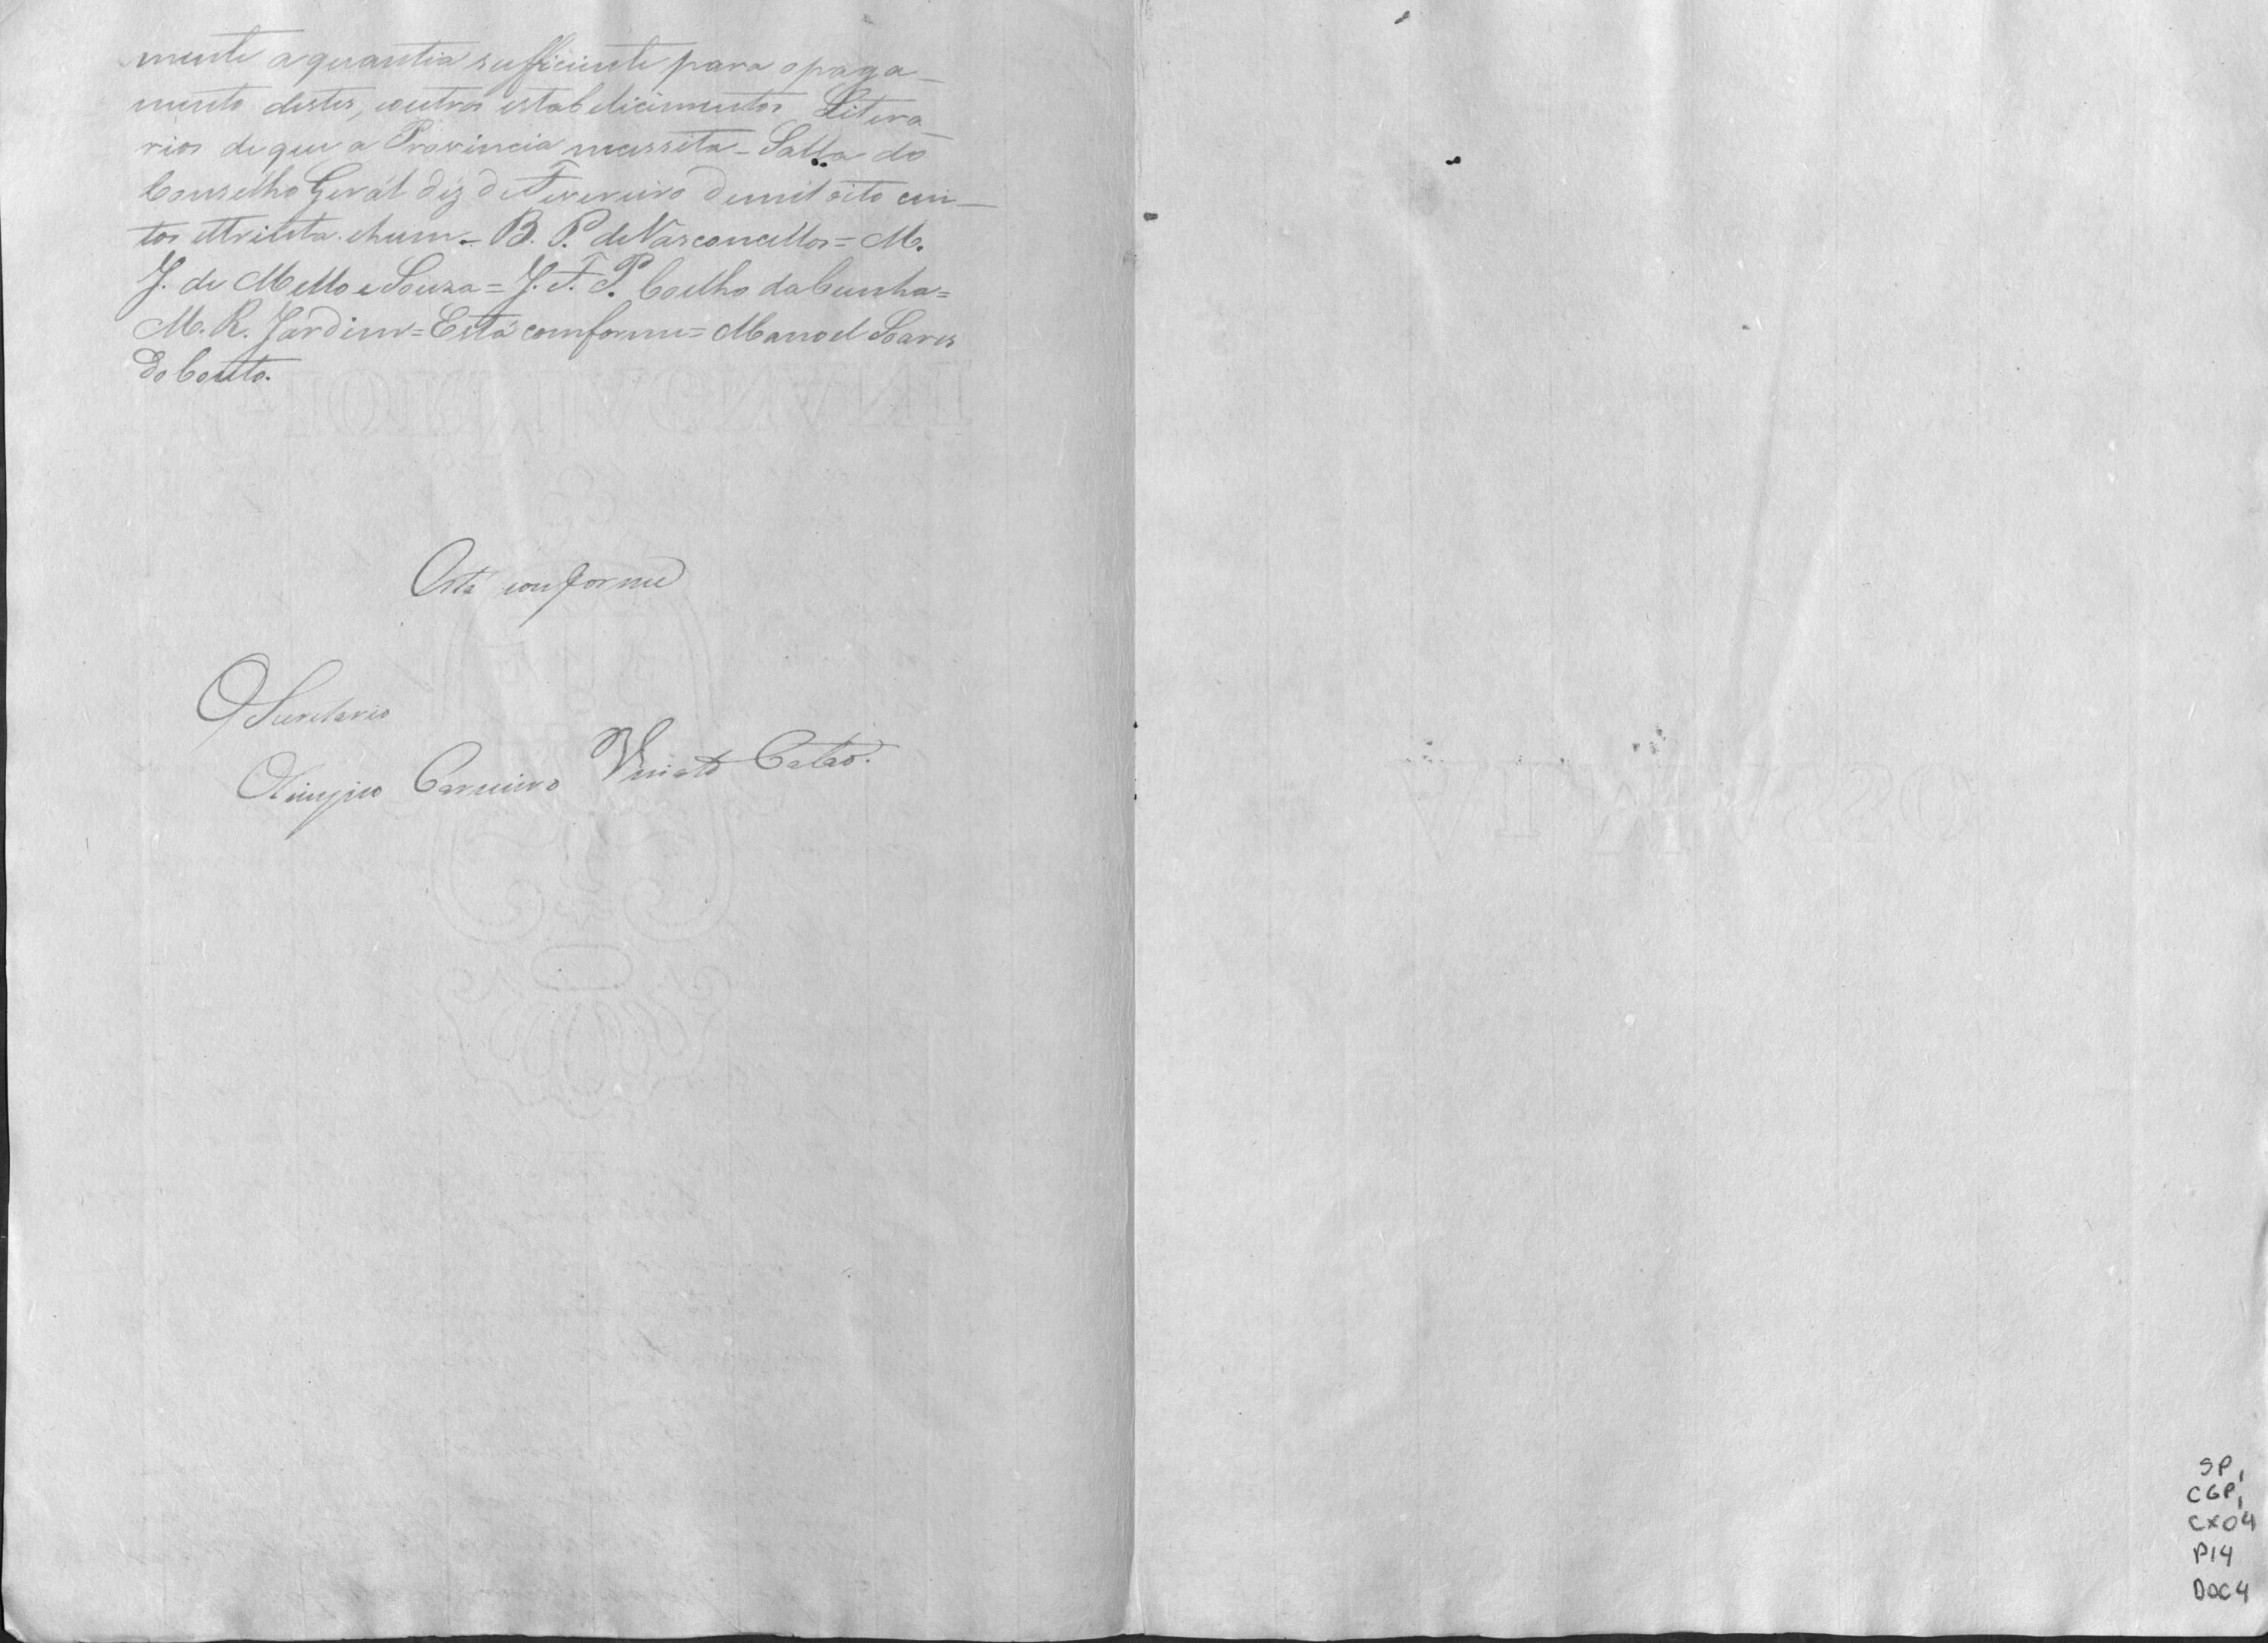 mente a quantia sufficiente para o paga-
mento destes, e outros estabelicimentos Litera-
rios de que a Provincia necessita - Salla do
Conselho Gerál dez de Fevereiro de mil oito cen-
tos e trinta e hum. - B. P. de Vasconcellos = M.
J. de Mello e Souza = J. F. P. Coelho da Cunha =
M. R. Jardim = Está comforme = Manoel Soares
do Couto.
Está conforme
O Secretario
Olimpio Carneiro Viriato Catão.
SP,
CGP,
CX04
P14
DOC4